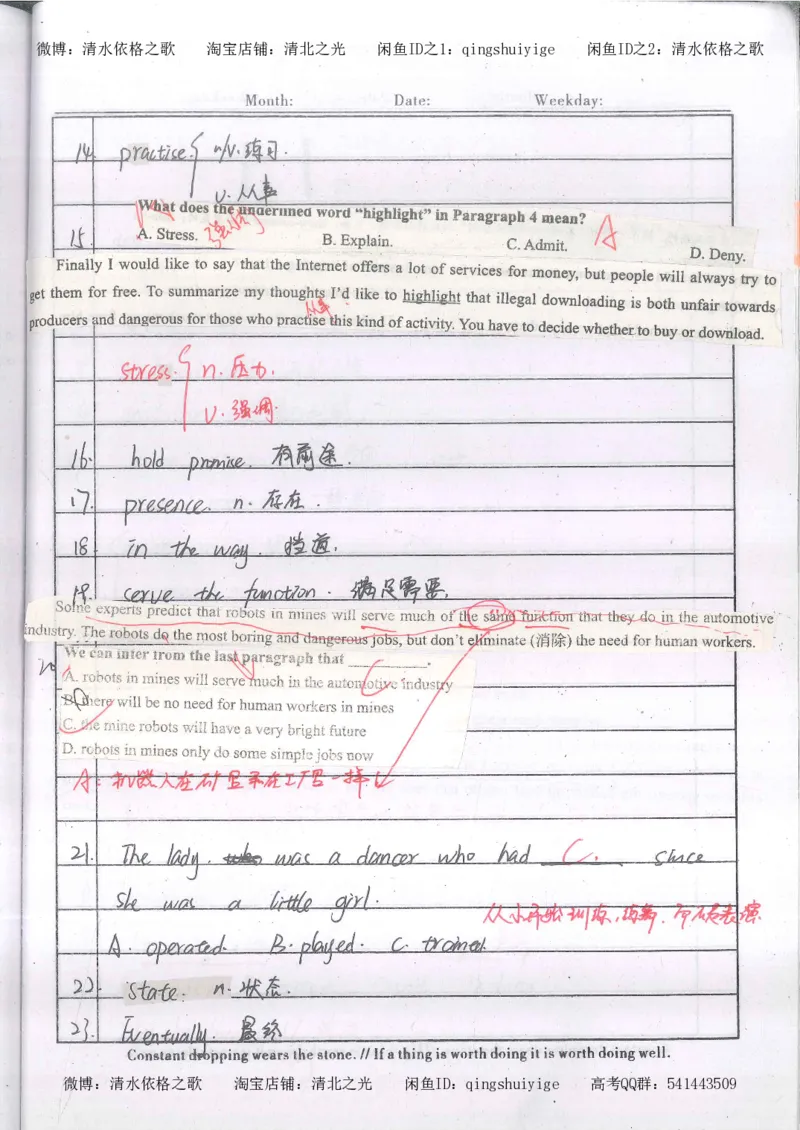 微博：清水依格之歌 淘宝店铺：清北之光 闲鱼ID之1：qingshuiyige 闲鱼ID之2：清水依格之歌
Month: Date: Weekday:
14. practise { n/v. 练习.
v. 从事
What does the underlined word “highlight” in Paragraph 4 mean?
15. A. Stress. 强调 B. Explain. C. Admit. D. Deny. A
Finally I would like to say that the Internet offers a lot of services for money, but people will always try to
get them for free. To summarize my thoughts I’d like to highlight that illegal downloading is both unfair towards
从事
producers and dangerous for those who practise this kind of activity. You have to decide whether to buy or download.
stress. { n. 压力.
v. 强调.
16. hold promise. 有前途.
17. presence. n. 存在.
18 in the way. 挡道.
19. serve the function. 满足需要.
Some experts predict that robots in mines will serve much of the same function that they do in the automotive
industry. The robots do the most boring and dangerous jobs, but don’t eliminate (消除) the need for human workers.
20 We can infer from the last paragraph that ________. C
A. robots in mines will serve much in the automotive industry
B. there will be no need for human workers in mines
C. the mine robots will have a very bright future
D. robots in mines only do some simple jobs now
A: 机器人在矿里和在工厂里一样
21. The lady. was a dancer who had C. since
she was a little girl.
从小开始训练,跳舞,
A. operated. B. played. C. trained.
22. State. n. 状态.
23. Eventually. 最终
Constant dropping wears the stone. // If a thing is worth doing it is worth doing well.
微博：清水依格之歌 淘宝店铺：清北之光 闲鱼ID：qingshuiyige 高考QQ群：541443509